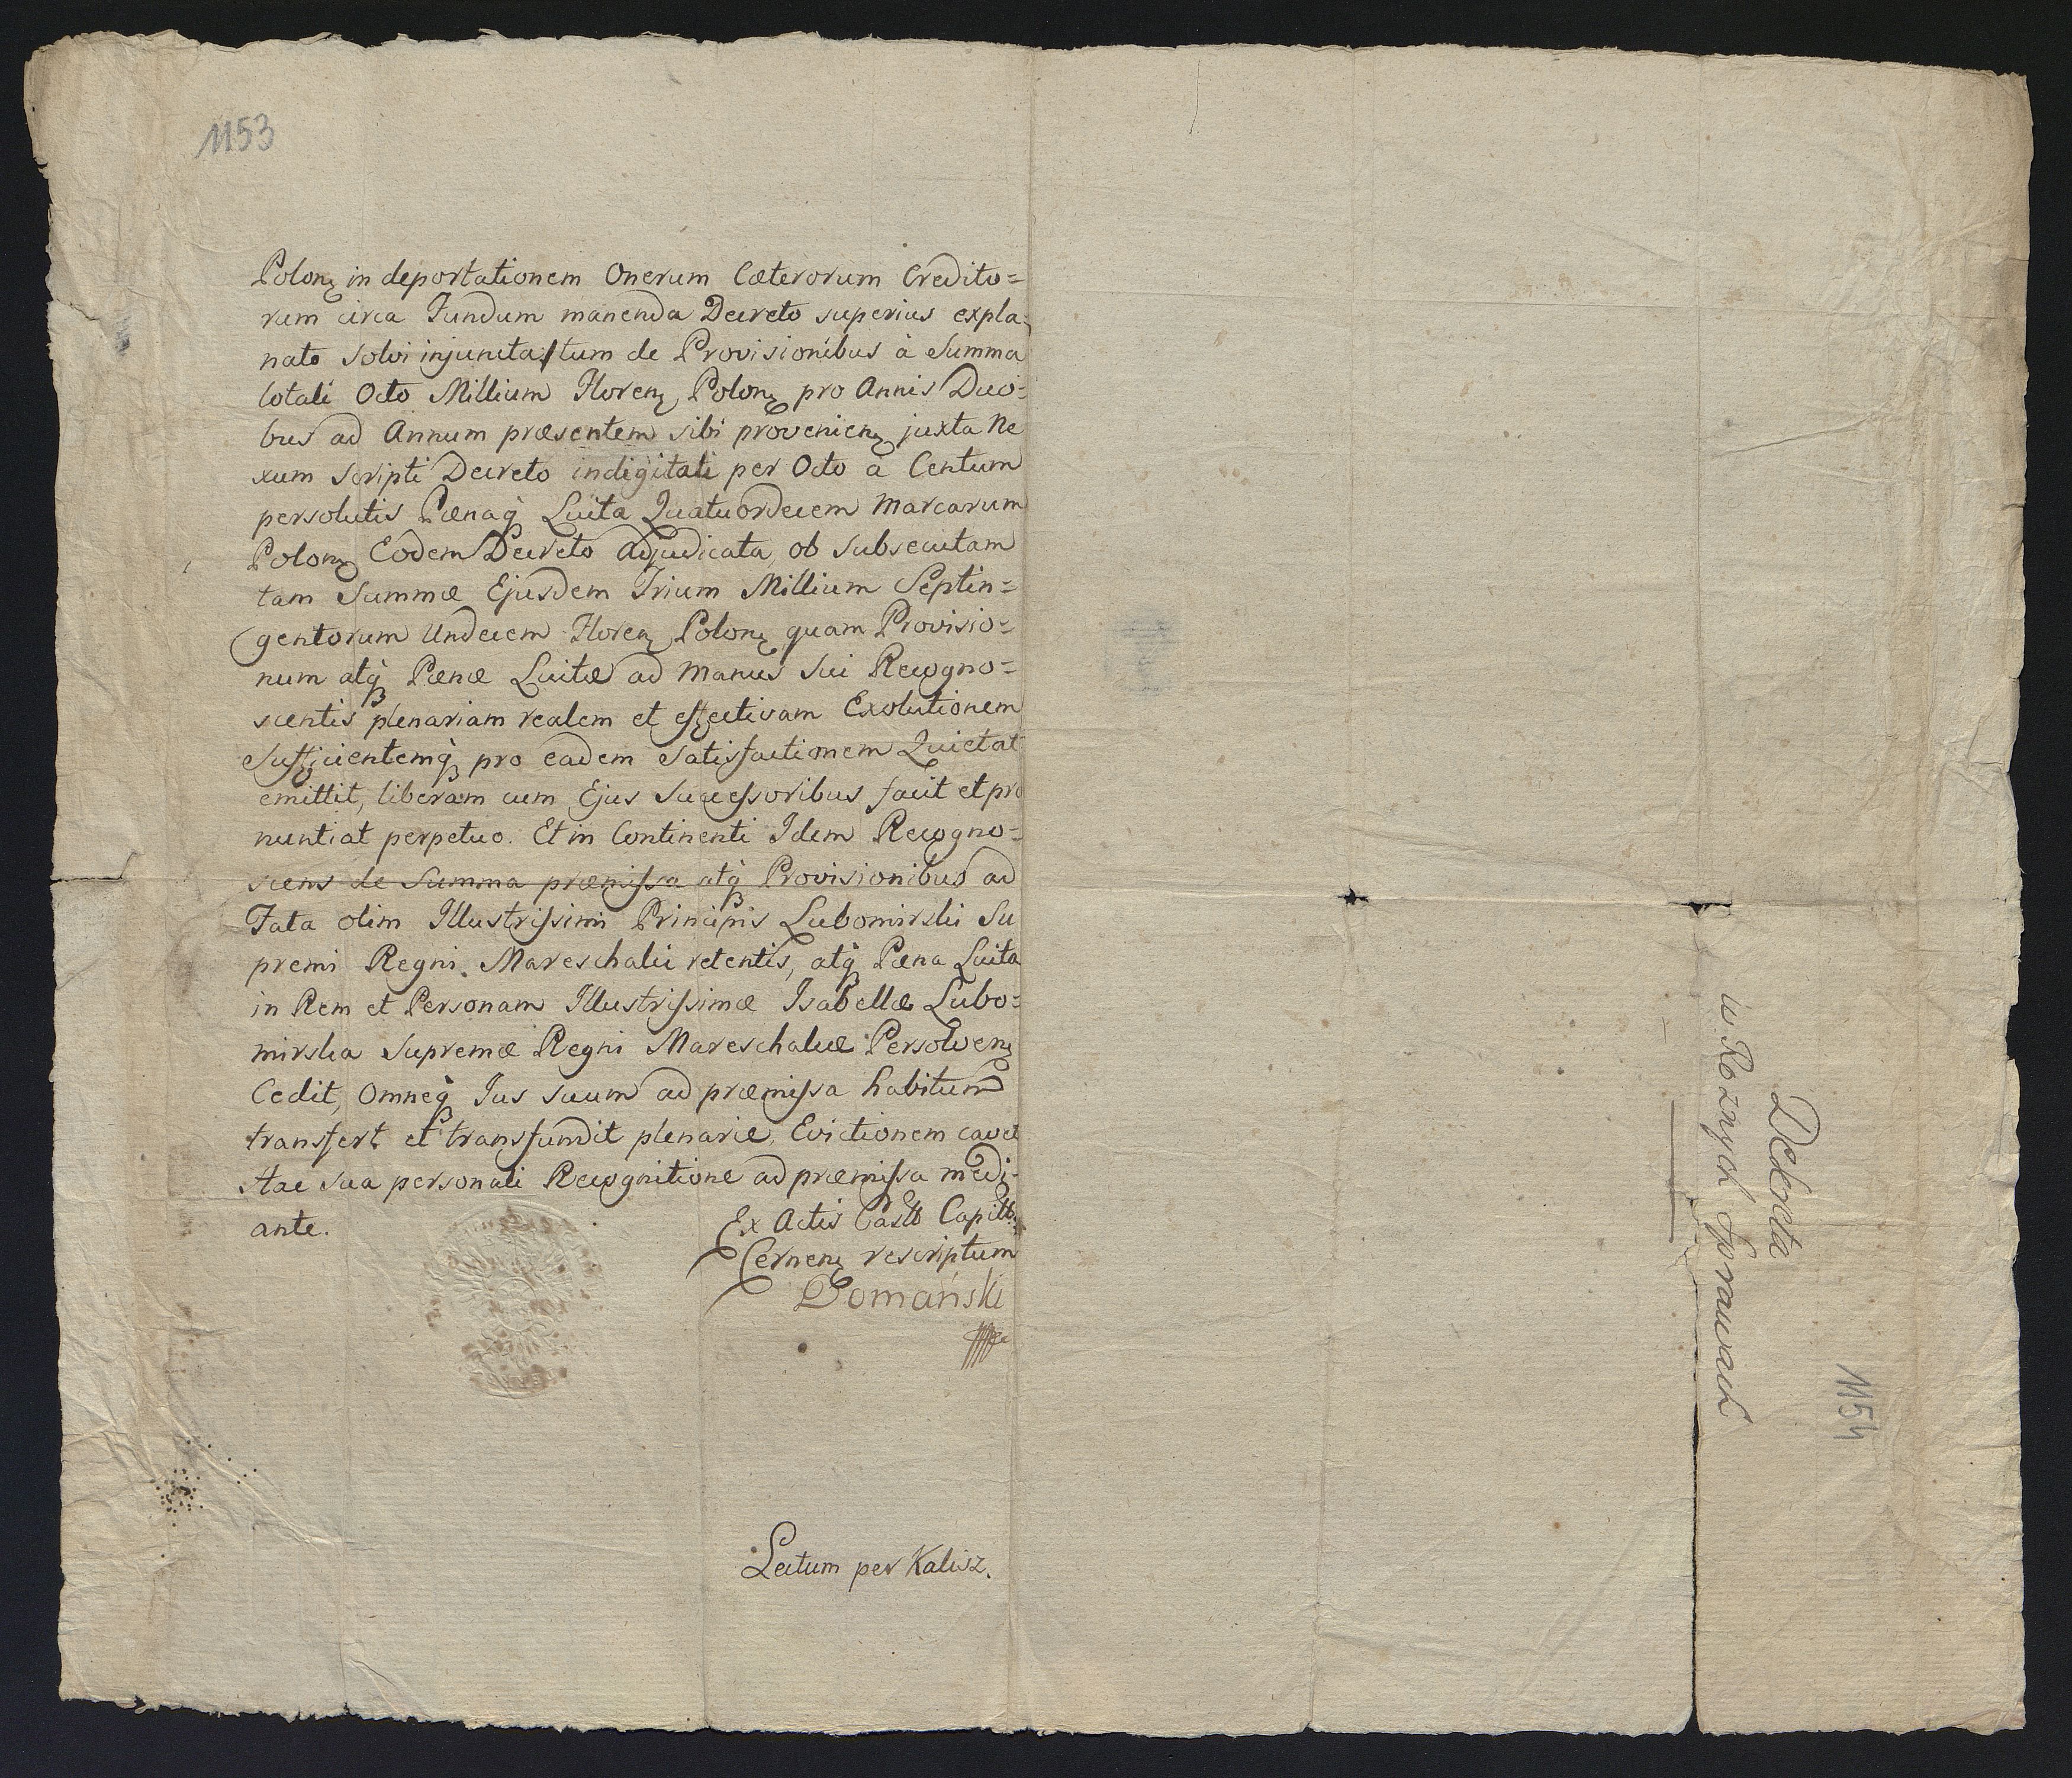 1153
Polonę in deportationem Onerum Cæterorum Credito=
rum circa Fundum manenda Decreto superius expla=
nato solvi injuncta, tum de Provisionibus à Summa
totali Octo Millium Florenę Polonę pro Annis Duo=
bus ad Annum præsentem sibi provenienę juxta Ne
xum Scripti Decreto indigitati per Octo à Centum
persolutis Pænaq̀ Luita Quatuordecem Marcarum
Polonę Eodem Decreto adjudicata, ob subsecutam
tam Summæ Ejusdem Trium Millium Septin=
gentorum Undecem Florenę Polonę quam Provisio=
num atq̀ Pænæ Luitæ ad manus sui Recogno=
scentis plenariam realem et effectivam Exolutionem
Sufficientemq̀ pro eadem Satisfactionem Quietat
emittit, liberam cum Ejus Successoribus facit et pro
nuntiat perpetuo. Et in Continenti Idem Recogno=
scens de Summa præmissa atq̀ Provisionibus ad
Fata olim Illustrissimi Principis Lubomirski Su
premi Regni Mareschalci retentis, atq̀ Pæna Luita
in Rem et Personam Illustrissimæ Isabellæ Lubo=
mirska Supremæ Regni Mareschalcæ Persolvenę
Cedit, Omneq̀ Jus suum ad præmissa habitum
transfert et transfundit plenarie, Evictionem cavet
Hac sua personali Recognitione ad præmissa medi-
ante.
Ex Actis Castr Capitt
Cernenę rescriptum
Domański
Lectum per Kalisz.
Dekreta
w Roznych Sprawach
1154